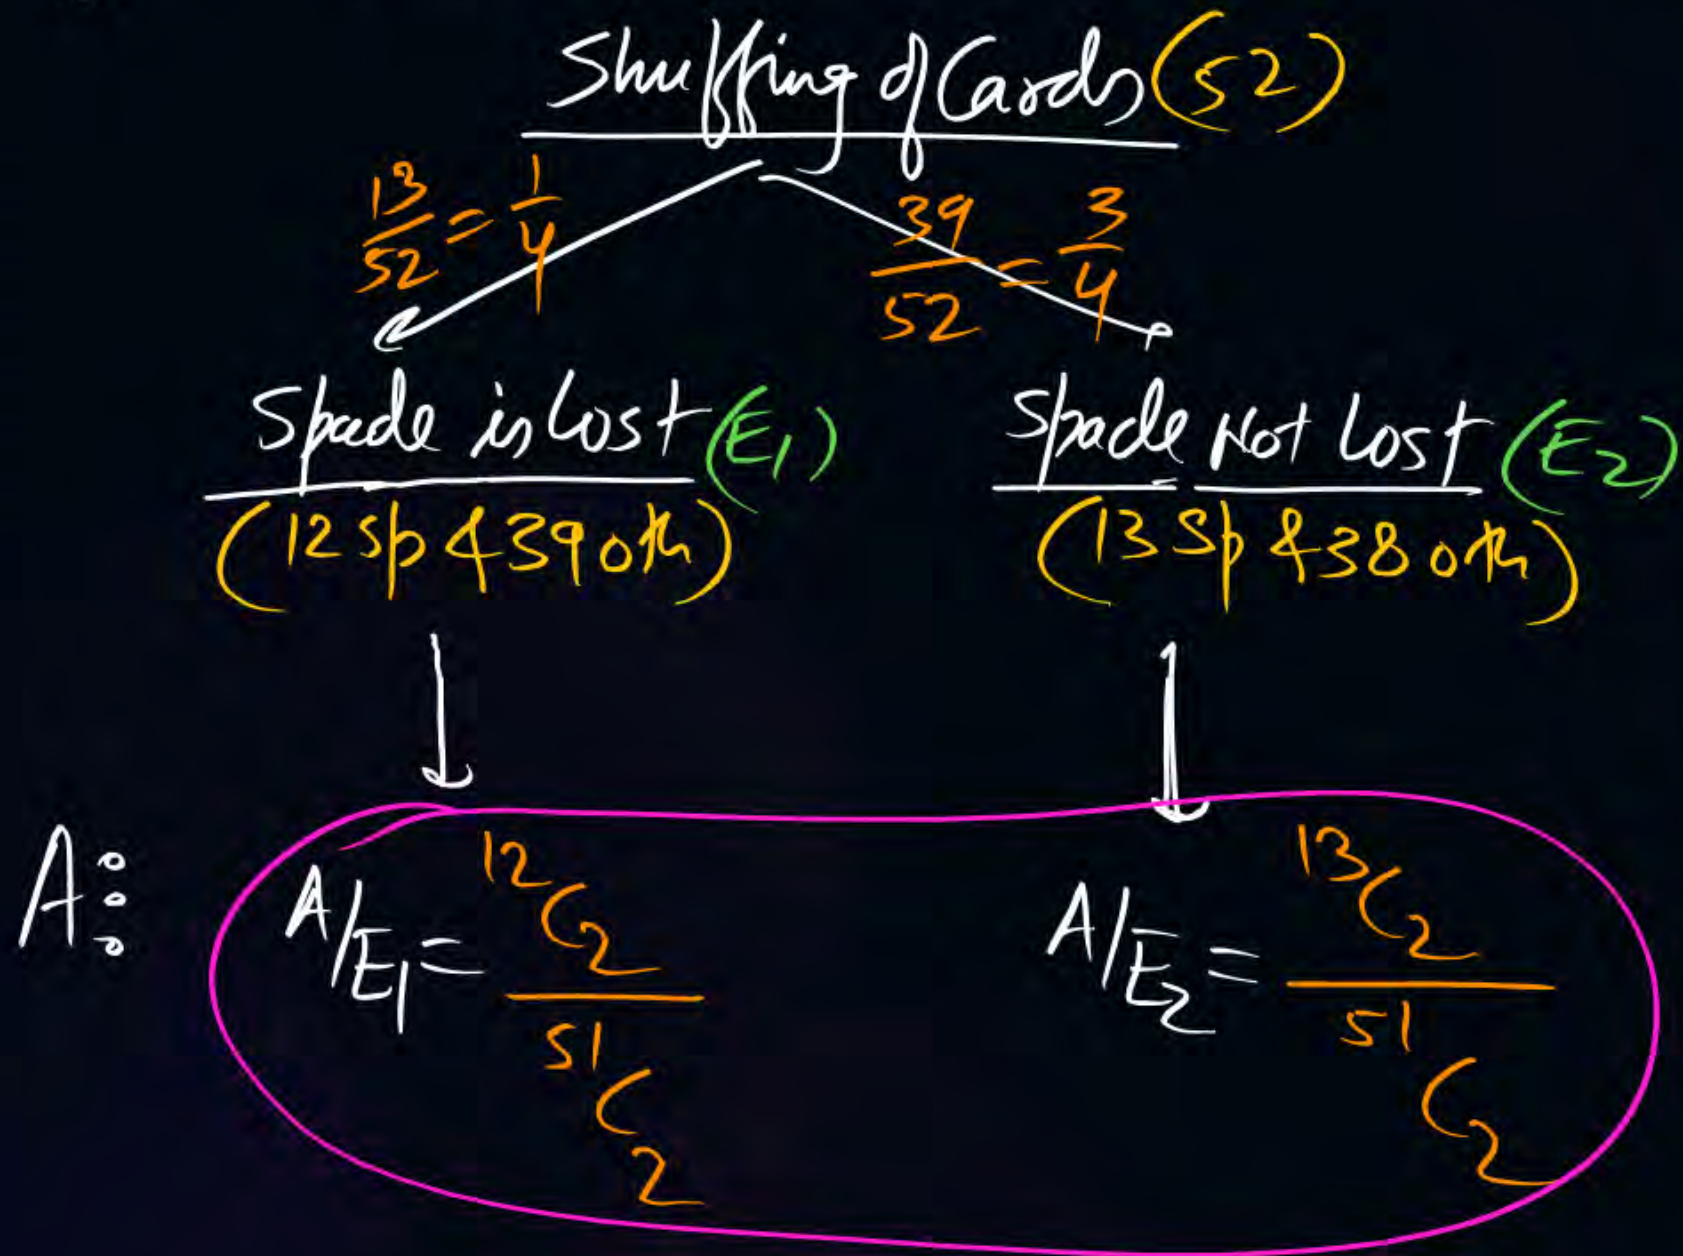 Shuffling of Cards (52)
13/52 = 1/4 39/52 = 3/4
Spade is Lost (E1) Spade Not Lost (E2)
(12 Sp & 39 oth) (13 Sp & 38 oth)
A: A/E1 = 12C2/51C2 A/E2 = 13C2/51C2